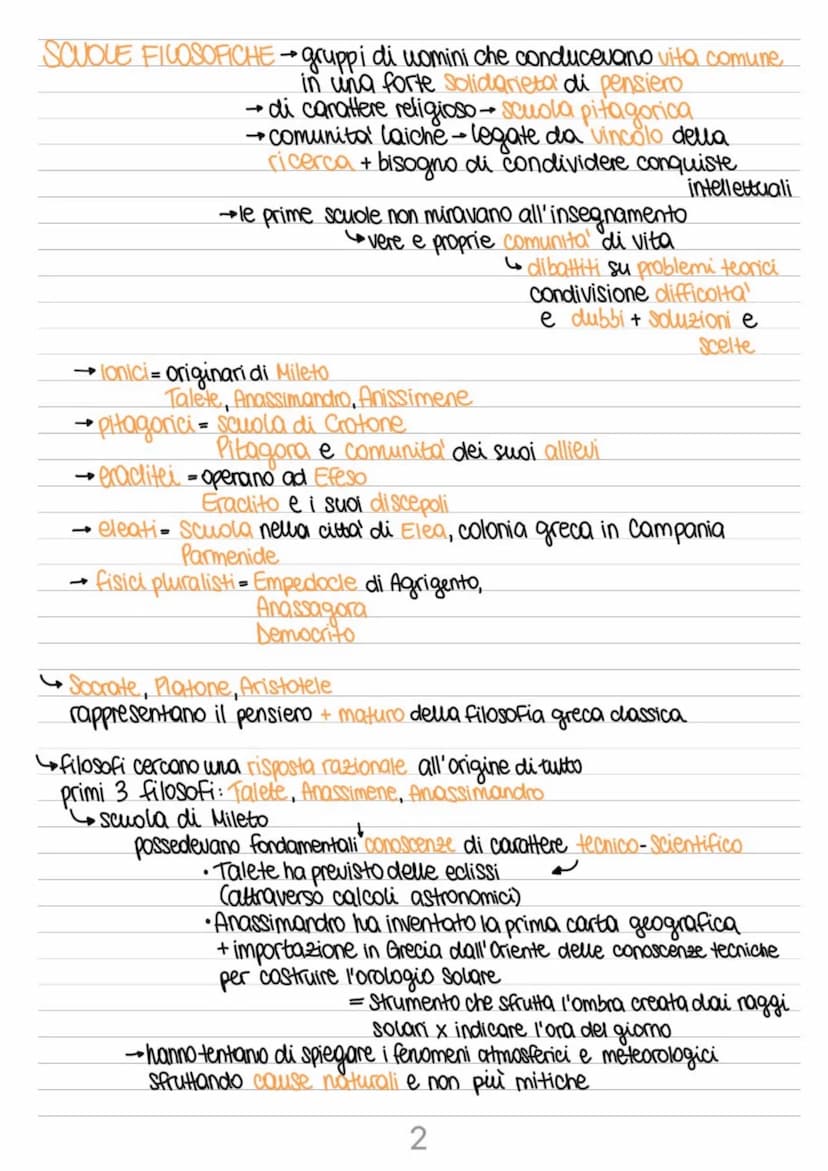 SCUOLE FILOSOFICHE → gruppi di uomini che conducevano vita comune
in una forte solidarieta' di pensiero
→ di carattere religioso → scuola pitagorica
→ comunita' laiche → legate da vincolo della
ricerca + bisogno di condividere conquiste
intellettuali
→ le prime scuole non miravano all'insegnamento
↳ vere e proprie comunita' di vita
↳ dibattiti su problemi teorici
condivisione difficolta'
e dubbi + soluzioni e
scelte
→ ionici = originari di Mileto
Talete, Anassimandro, Anissimene
→ pitagorici = scuola di Crotone
Pitagora e comunita' dei suoi allievi
→ eraclitei = operano ad Efeso
Eraclito e i suoi discepoli
→ eleati = scuola nella citta' di Elea, colonia greca in Campania
Parmenide
→ fisici pluralisti = Empedocle di Agrigento,
Anassagora
Democrito
↳ Socrate, Platone, Aristotele
rappresentano il pensiero + maturo della filosofia greca classica
↳ filosofi cercano una risposta razionale all'origine di tutto
primi 3 filosofi: Talete, Anassimene, Anassimandro
↳ scuola di Mileto
possedevano fondamentali conoscenze di carattere tecnico-scientifico
• Talete ha previsto delle eclissi
(attraverso calcoli astronomici)
• Anassimandro ha inventato la prima carta geografica
+ importazione in Grecia dall'Oriente delle conoscenze tecniche
per costruire l'orologio solare
= strumento che sfrutta l'ombra creata dai raggi
solari x indicare l'ora del giorno
→ hanno tentano di spiegare i fenomeni atmosferici e meteorologici
sfruttando cause naturali e non più mitiche
2